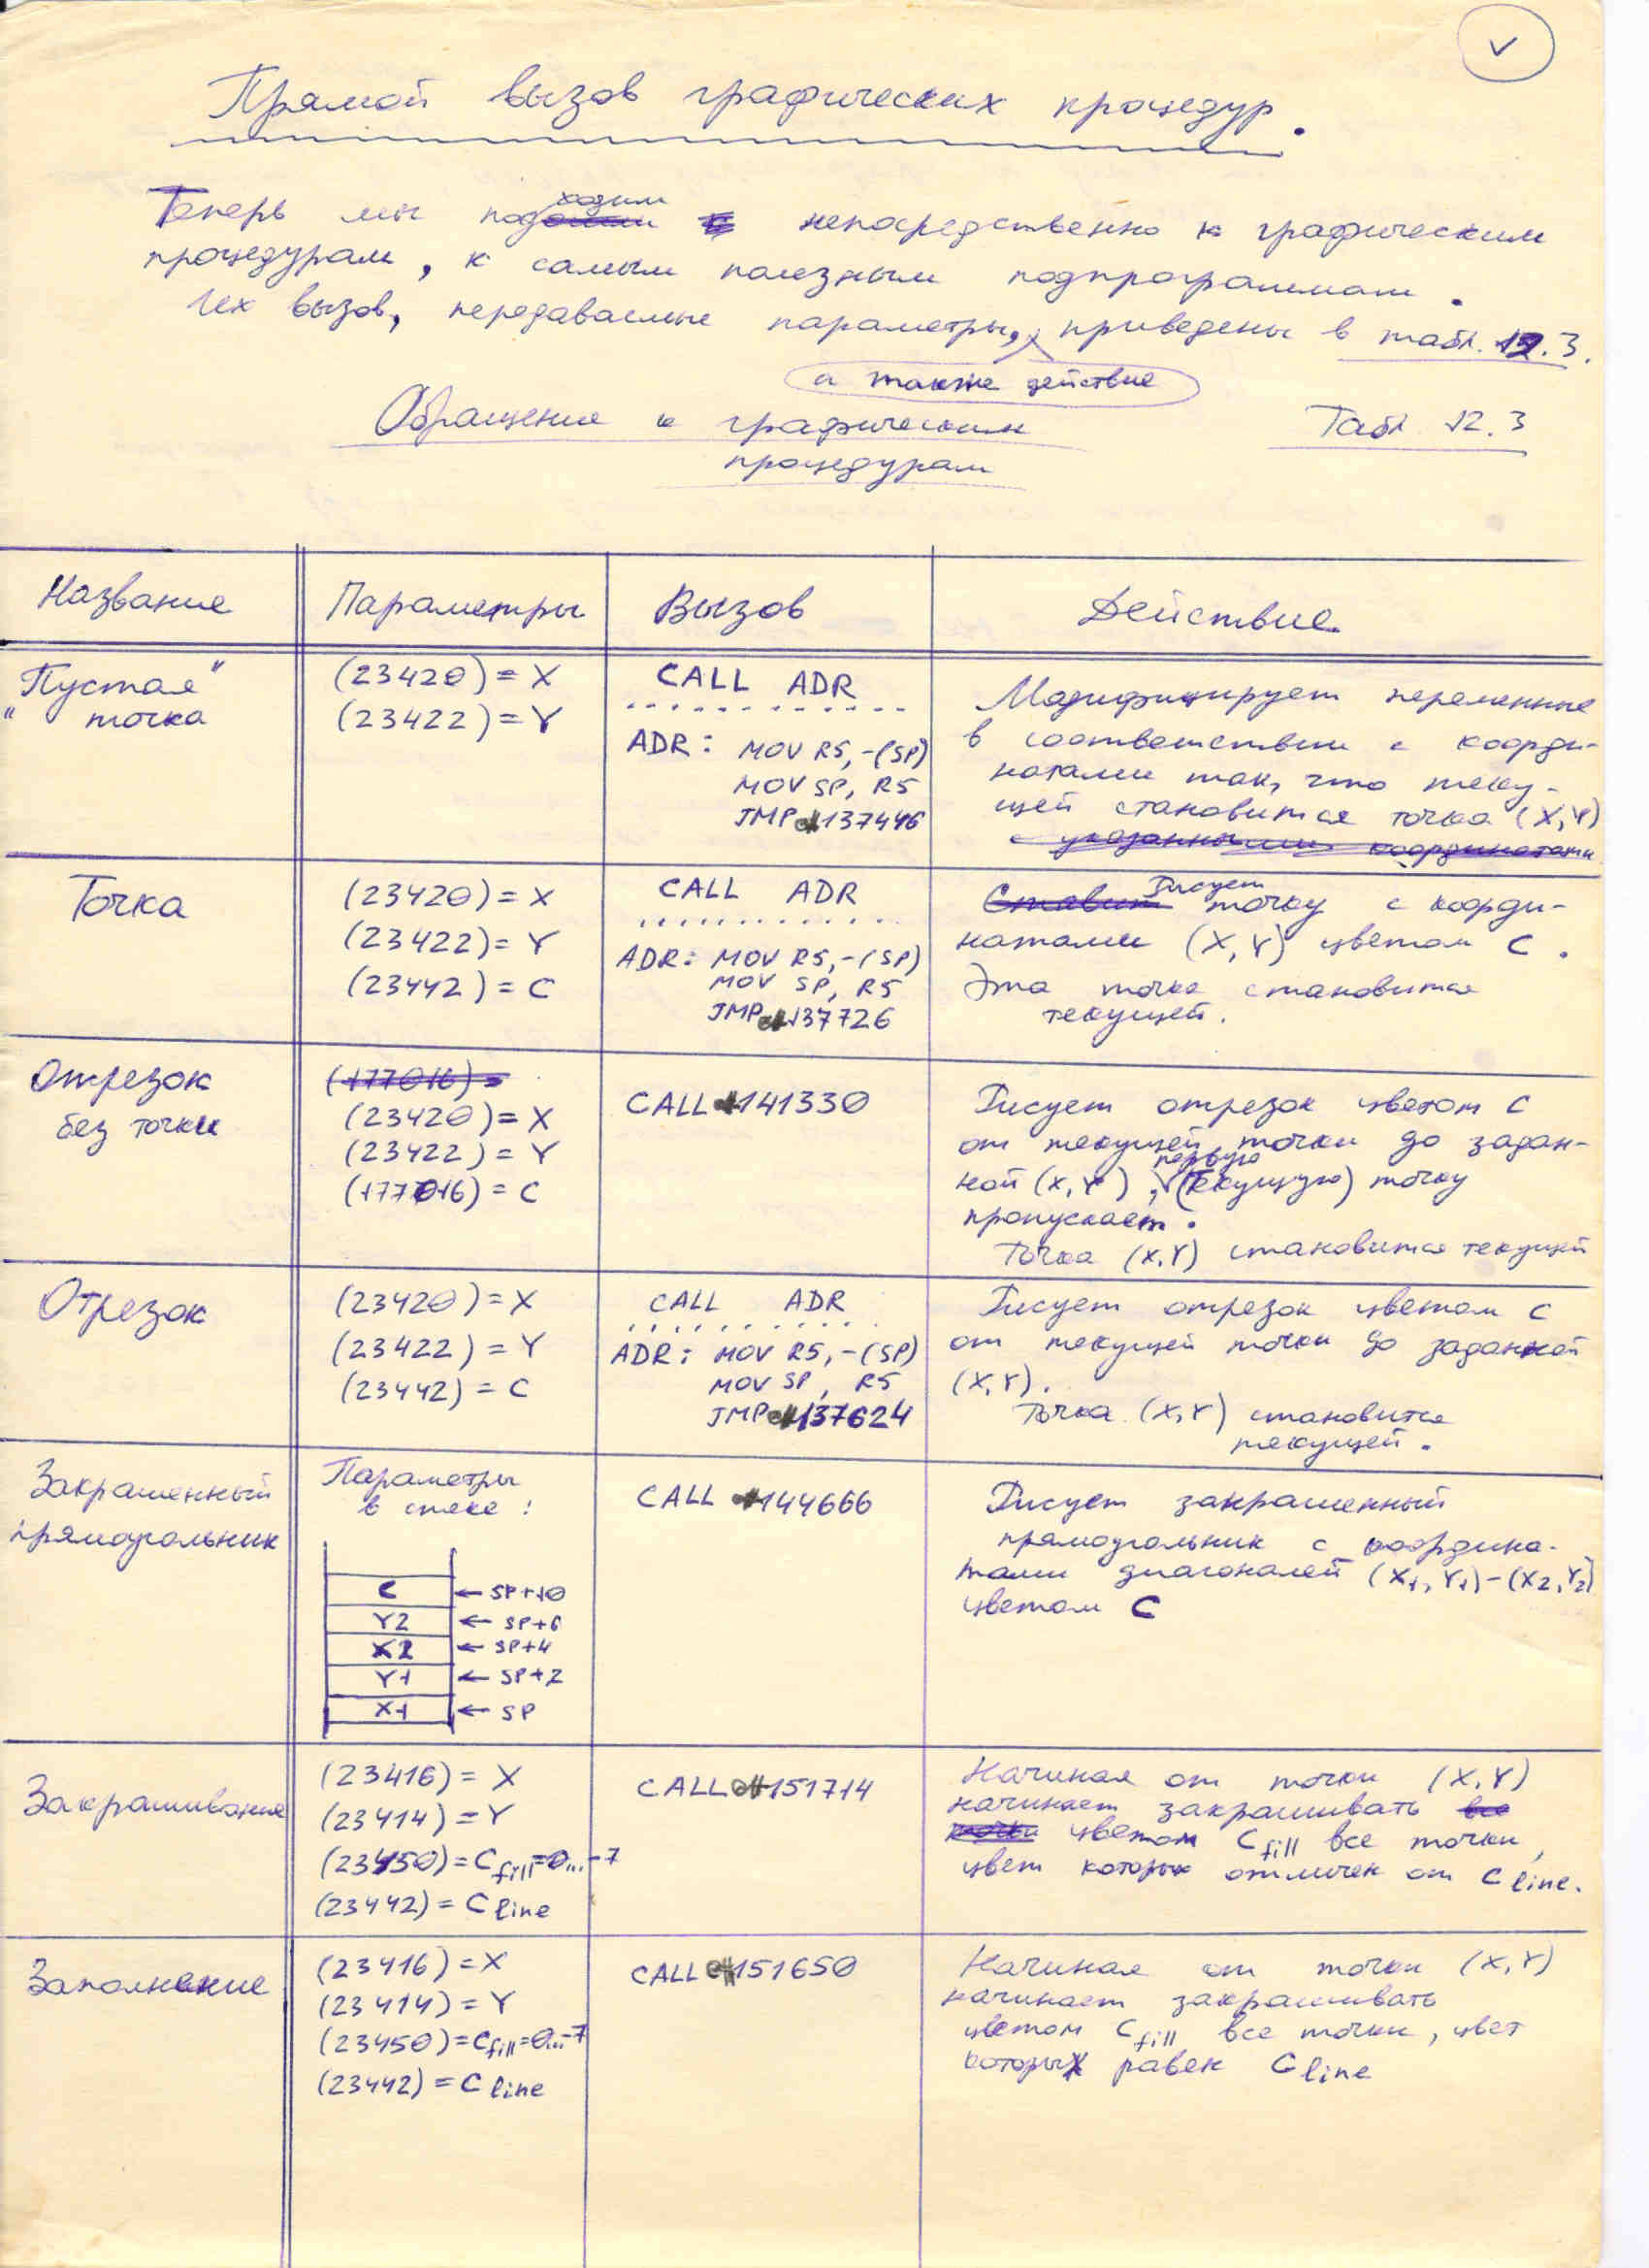 Прямой вызов графических процедур.
Теперь мы подходим непосредственно к графическим
процедурам, к самым полезным подпрограммам.
Их вызов, передаваемые параметры, а также действие приведены в табл. 12.3.
Обращение к графическим
процедурам
Табл. 12.3
Название Параметры Вызов Действие
"Пустая"
" точка
(23420) = X
(23422) = Y
CALL ADR
............
ADR: MOV R5,-(SP)
MOV SP, R5
JMP 137446
Модифицирует переменные
в соответствии с коорди-
натами так, что теку-
щей становится точка (X,Y)
Точка
(23420) = X
(23422) = Y
(23442) = C
CALL ADR
............
ADR: MOV R5,-(SP)
MOV SP, R5
JMP 137726
Рисует точку с коорди-
натами (X,Y) цветом C.
Эта точка становится
текущей.
Отрезок
без точки
(177016) =
(23420) = X
(23422) = Y
(177016) = C
CALL 141330
Рисует отрезок цветом C
от текущей точки до задан-
ной (X,Y), первую (текущую) точку
пропускает.
Точка (X,Y) становится текущей
Отрезок
(23420) = X
(23422) = Y
(23442) = C
CALL ADR
...........
ADR: MOV R5,-(SP)
MOV SP, R5
JMP 137624
Рисует отрезок цветом C
от текущей точки до заданной
(X,Y).
Точка (X,Y) становится
текущей.
Закрашенный
прямоугольник
Параметры
в стеке:
C ← SP+10
Y2 ← SP+6
X2 ← SP+4
Y1 ← SP+2
X1 ← SP
CALL 144666
Рисует закрашенный
прямоугольник с координа-
тами диагоналей (X1,Y1)-(X2,Y2)
цветом C
Закрашивание
(23416) = X
(23414) = Y
(23450) = C fill = 0...-7
(23442) = C line
CALL 151714
Начиная от точки (X,Y)
начинает закрашивать
цветом C fill все точки,
цвет которых отличен от C line.
Заполнение
(23416) = X
(23414) = Y
(23450) = C fill = 0...-7
(23442) = C line
CALL 151650
Начиная от точки (X,Y)
начинает закрашивать
цветом C fill все точки, цвет
которых равен C line